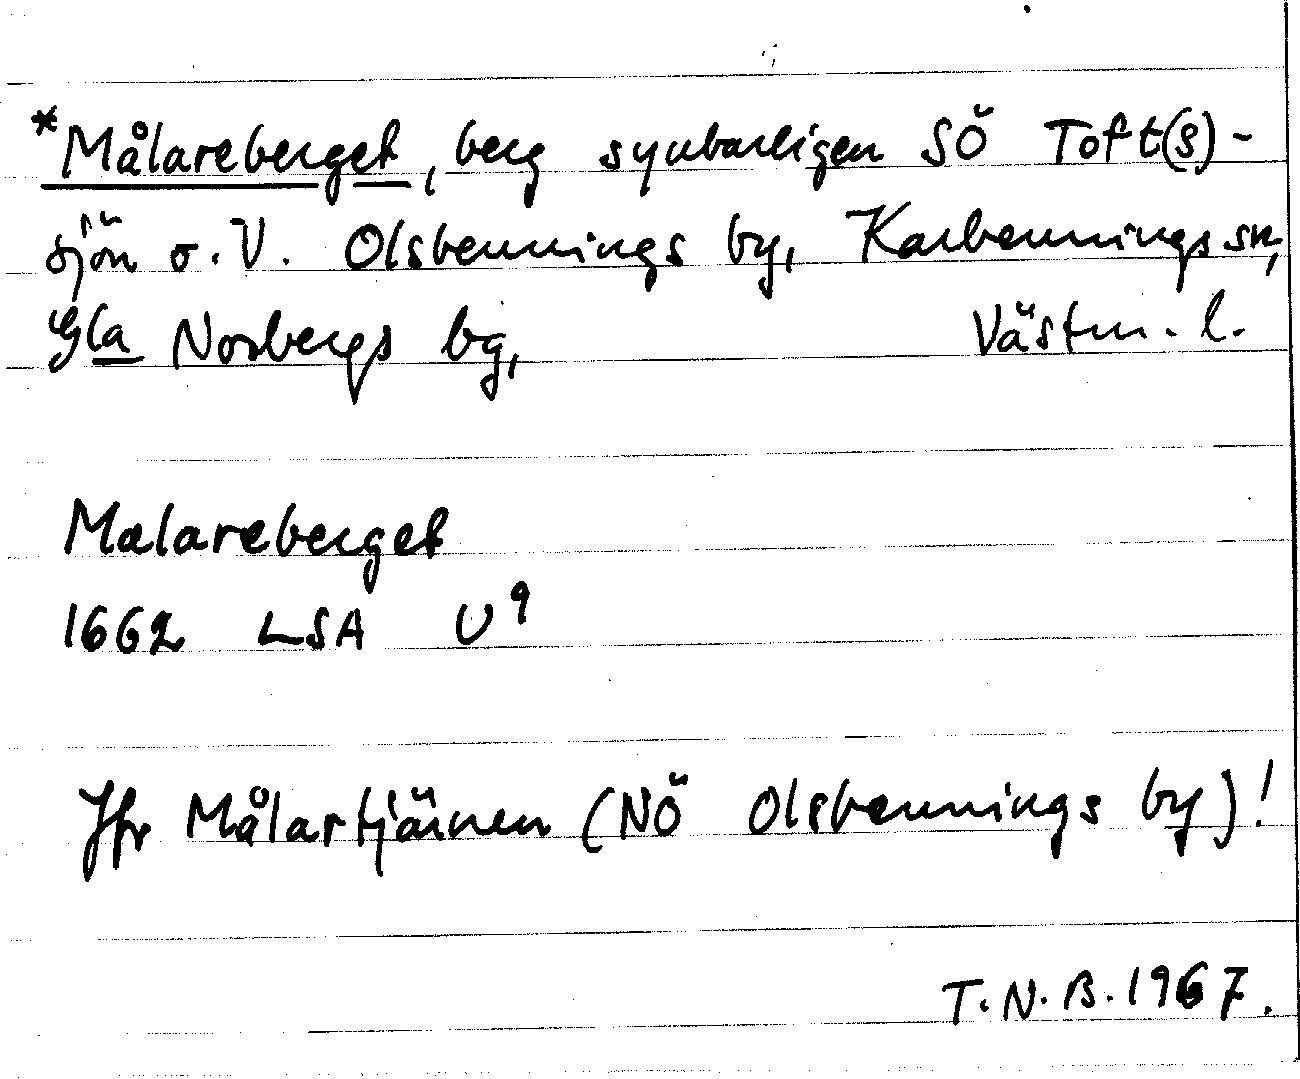 *Målareberget, berg synbarligen SÖ Toft(s)-
sjön o. V. Olsbennings by, Karbennings sn,
Gla Norbergs bg, Västm. l.
Malareberget
1662 LSA U9
Jfr Målartjärnen (NÖ Olsbennings by)!
T.N.B. 1967.